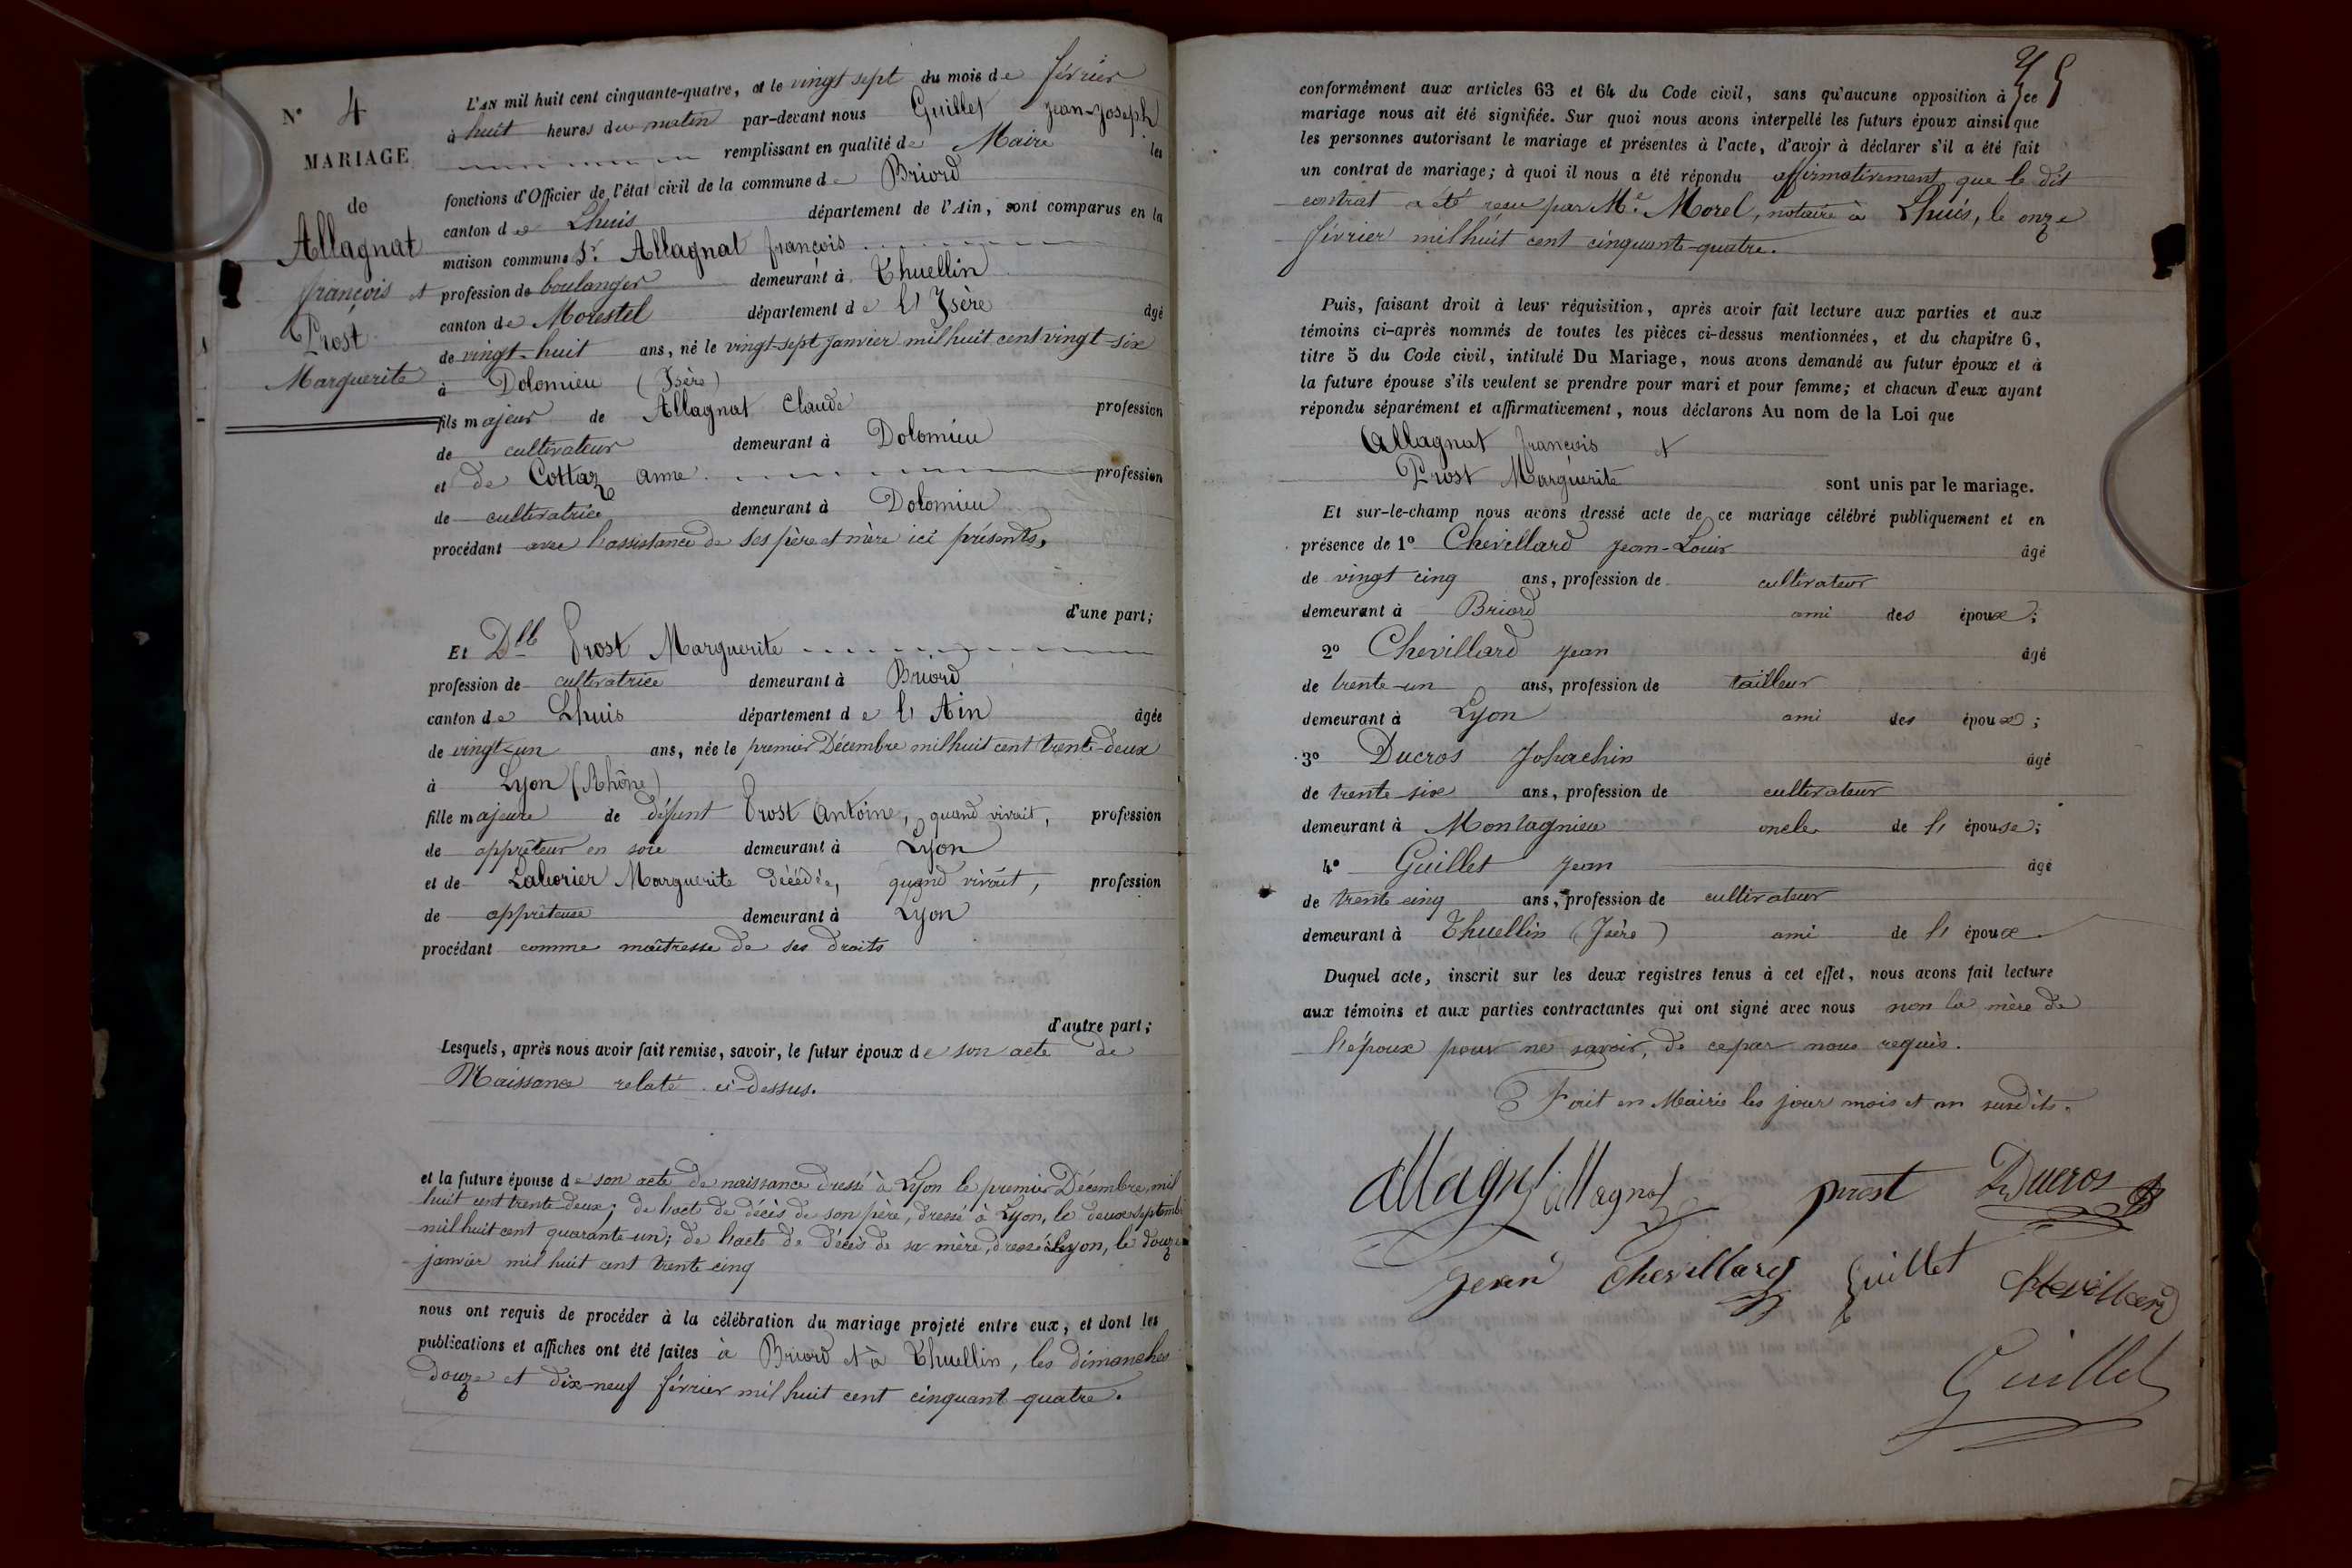 N° 4
MARIAGE
de
Allagnat
françois et
Prost
Marguerite
L'AN mil huit cent cinquante-quatre, et le vingt sept du mois de février
à huit heures du matin par-devant nous Guillet Jean-Joseph
remplissant en qualité de Maire les
fonctions d'Officier de l'état civil de la commune de Briord
canton de Lhuis département de l'Ain, sont comparus en la
maison commune Sr. Allagnat françois
profession de boulanger demeurant à Thuellin
canton de Morestel département de l'Isère âgé
de vingt-huit ans, né le vingt-sept janvier mil huit cent vingt-six
à Dolomieu (Isère)
fils majeur de Allagnat Claude profession
de cultivateur demeurant à Dolomieu
et de Cottaz anne profession
de cultivatrice demeurant à Dolomieu
procédant avec l'assistance de ses père et mère ici présents,
d'une part;
Et Dlle Prost Marguerite
profession de cultivatrice demeurant à Briord
canton de Lhuis département de l'Ain âgée
de vingt-un ans, née le premier Décembre mil huit cent trente-deux
à Lyon (Rhône)
fille majeure de défunt Prost Antoine, quand vivait, profession
de apprêteur en soie demeurant à Lyon
et de Laborier Marguerite décédée, quand vivait, profession
de apprêteuse demeurant à Lyon
procédant comme maîtresse de ses droits
d'autre part;
Lesquels, après nous avoir fait remise, savoir, le futur époux de son acte de
Naissance relaté ci-dessus.
et la future épouse de son acte de naissance dressé à Lyon le premier Décembre, mil
huit cent trente-deux; de l'acte de décès de son père, dressé à Lyon, le deux septemb
mil huit cent quarante-un; de l'acte de décès de sa mère, dressé à Lyon, le douze
janvier mil huit cent trente cinq
nous ont requis de procéder à la célébration du mariage projeté entre eux, et dont les
publications et affiches ont été faites à Briord et à Thuellin, les dimanches
douze et dix-neuf février mil huit cent cinquant-quatre.
conformément aux articles 63 et 64 du Code civil, sans qu'aucune opposition à ce
mariage nous ait été signifiée. Sur quoi nous avons interpellé les futurs époux ainsi que
les personnes autorisant le mariage et présentes à l'acte, d'avoir à déclarer s'il a été fait
un contrat de mariage; à quoi il nous a été répondu affirmativement que le dit
contrat a été reçu par Me. Morel, notaire à Lhuis, le onze
février mil huit cent cinquante-quatre.
Puis, faisant droit à leur réquisition, après avoir fait lecture aux parties et aux
témoins ci-après nommés de toutes les pièces ci-dessus mentionnées, et du chapitre 6,
titre 5 du Code civil, intitulé Du Mariage, nous avons demandé au futur époux et à
la future épouse s'ils veulent se prendre pour mari et pour femme; et chacun d'eux ayant
répondu séparément et affirmativement, nous déclarons Au nom de la Loi que
Allagnat françois et
Prost Marguerite sont unis par le mariage.
Et sur-le-champ nous avons dressé acte de ce mariage célébré publiquement et en
présence de 1° Chevillard Jean-Louis âgé
de vingt cinq ans, profession de cultivateur
demeurant à Briord ami des époux;
2° Chevillard Jean âgé
de trente-un ans, profession de tailleur
demeurant à Lyon ami des époux;
3° Ducros Johachin âgé
de trente-six ans, profession de cultivateur
demeurant à Montagnieu oncle de l'épouse;
4° Guillet Jean âgé
de trente cinq ans, profession de cultivateur
demeurant à Thuellin (Isère) ami de l'époux
Duquel acte, inscrit sur les deux registres tenus à cet effet, nous avons fait lecture
aux témoins et aux parties contractantes qui ont signé avec nous non la mère de
l'époux pour ne savoir, de ce par nous requis.
Fait en Mairie les jour mois et an susdits.
Allagnat allagnat prost Ducros
Jean Chevillard Guillet Chevillard
Guillet